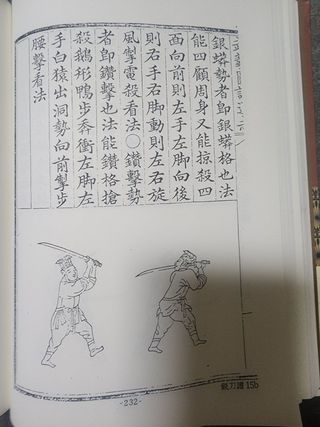 銀蟒勢者卽銀蟒格也法
能四顧周身又能掠殺四
面向前則左手左脚向後
則右手右脚動則左右旋
風掣電殺看法○鑽擊勢
者卽鑽擊也法能鑽格搶
殺鵝形鴨步奔衝左脚左
手白猿出洞勢向前掣步
腰擊看法
銳刀譜 15b
-232-